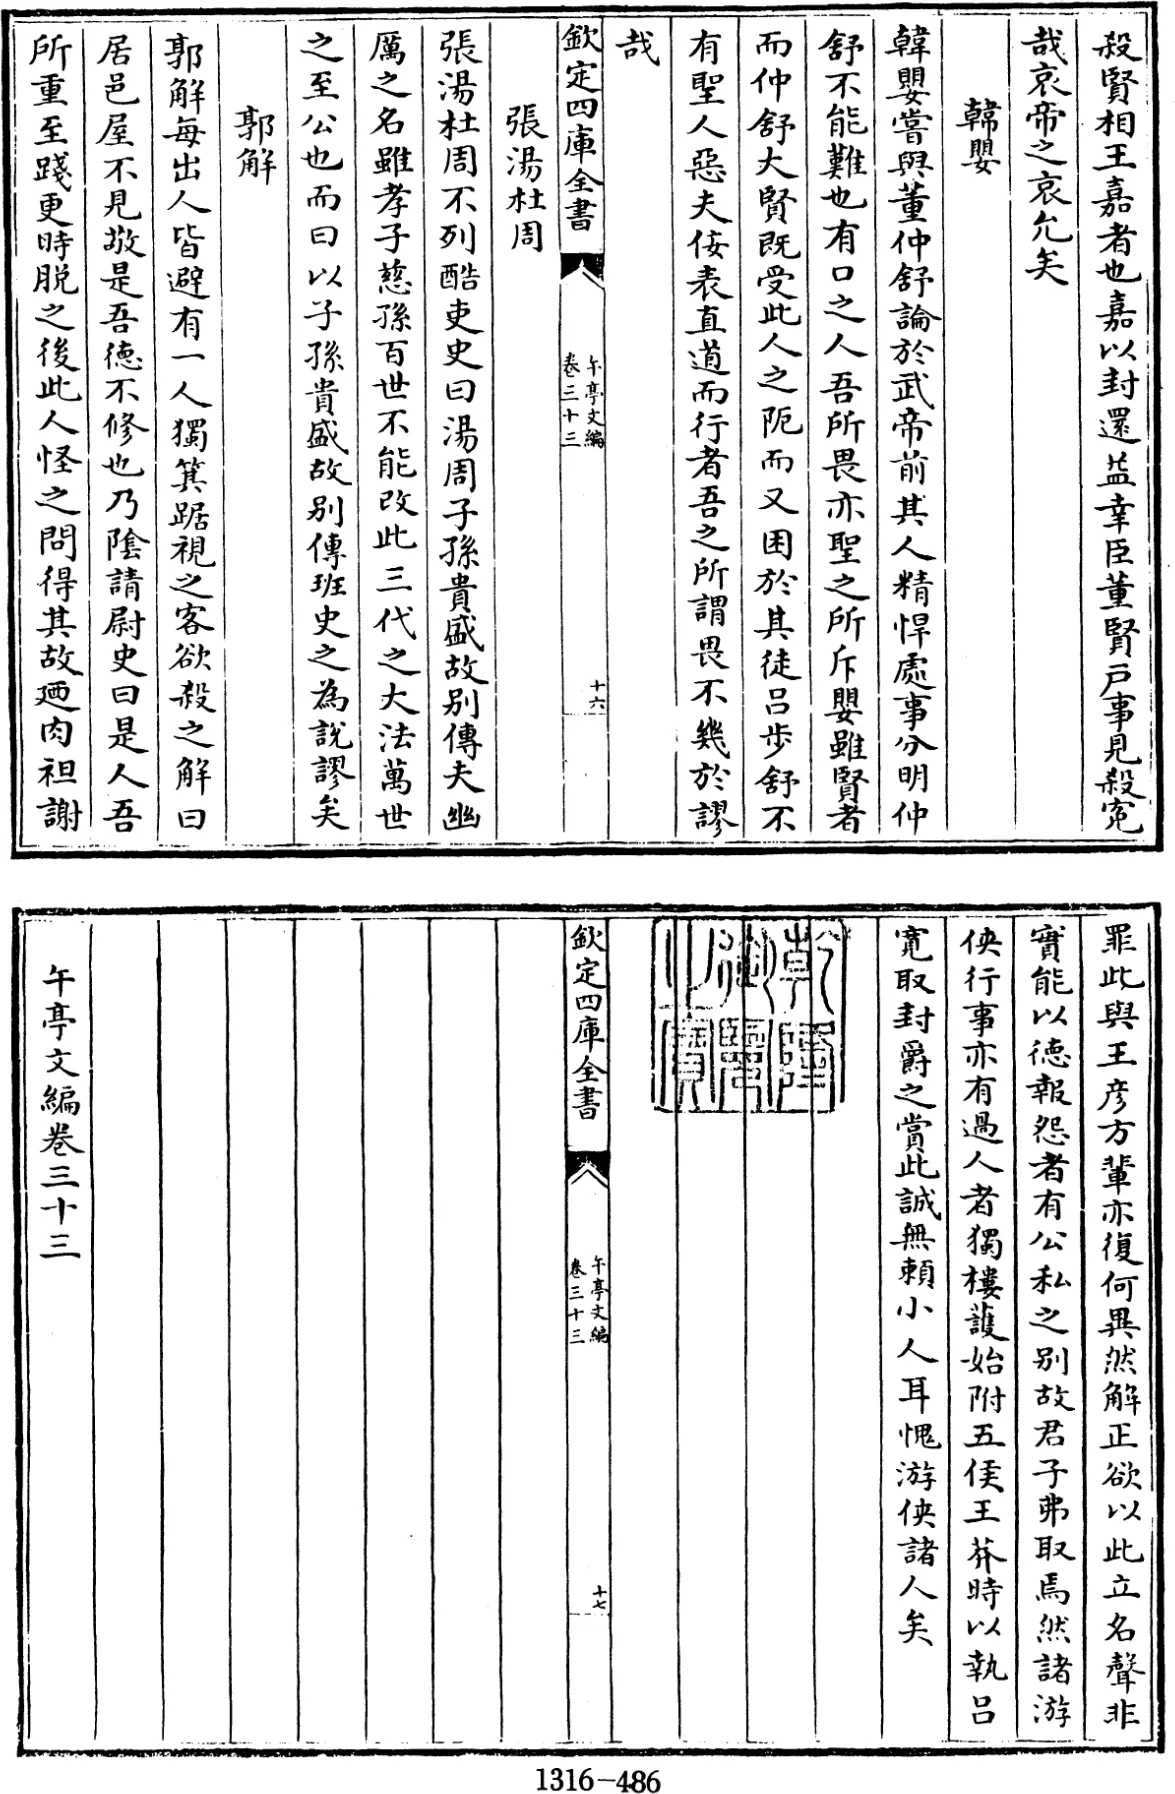 殺賢相王嘉者也嘉以封還益幸臣董賢戸事見殺寃
哉哀帝之哀允矣
韓嬰
韓嬰嘗與董仲舒論於武帝前其人精悍處事分明仲
舒不能難也有口之人吾所畏亦聖之所斥嬰雖賢者
而仲舒大賢既受此人之阨而又困於其徒吕步舒不
有聖人惡夫佞表直道而行者吾之所謂畏不幾於謬
哉
欽定四庫全書
午亭文編
卷三十三
十六
張湯杜周
張湯杜周不列酷吏史曰湯周子孫貴盛故别傳夫幽
厲之名雖孝子慈孫百世不能改此三代之大法萬世
之至公也而曰以子孫貴盛故别傳班史之為說謬矣
郭解
郭解每出人皆避有一人獨箕踞視之客欲殺之解曰
居邑屋不見敬是吾德不修也乃陰請尉史曰是人吾
所重至踐更時脱之後此人怪之問得其故廼肉袒謝
罪此與王彦方輩亦復何異然解正欲以此立名聲非
實能以德報怨者有公私之别故君子弗取焉然諸游
俠行事亦有過人者獨樓護始附五侯王莽時以執吕
寛取封爵之賞此誠無賴小人耳愧游俠諸人矣
乾隆御覽之寶
欽定四庫全書
午亭文編
卷三十三
十七
午亭文編卷三十三
1316-486